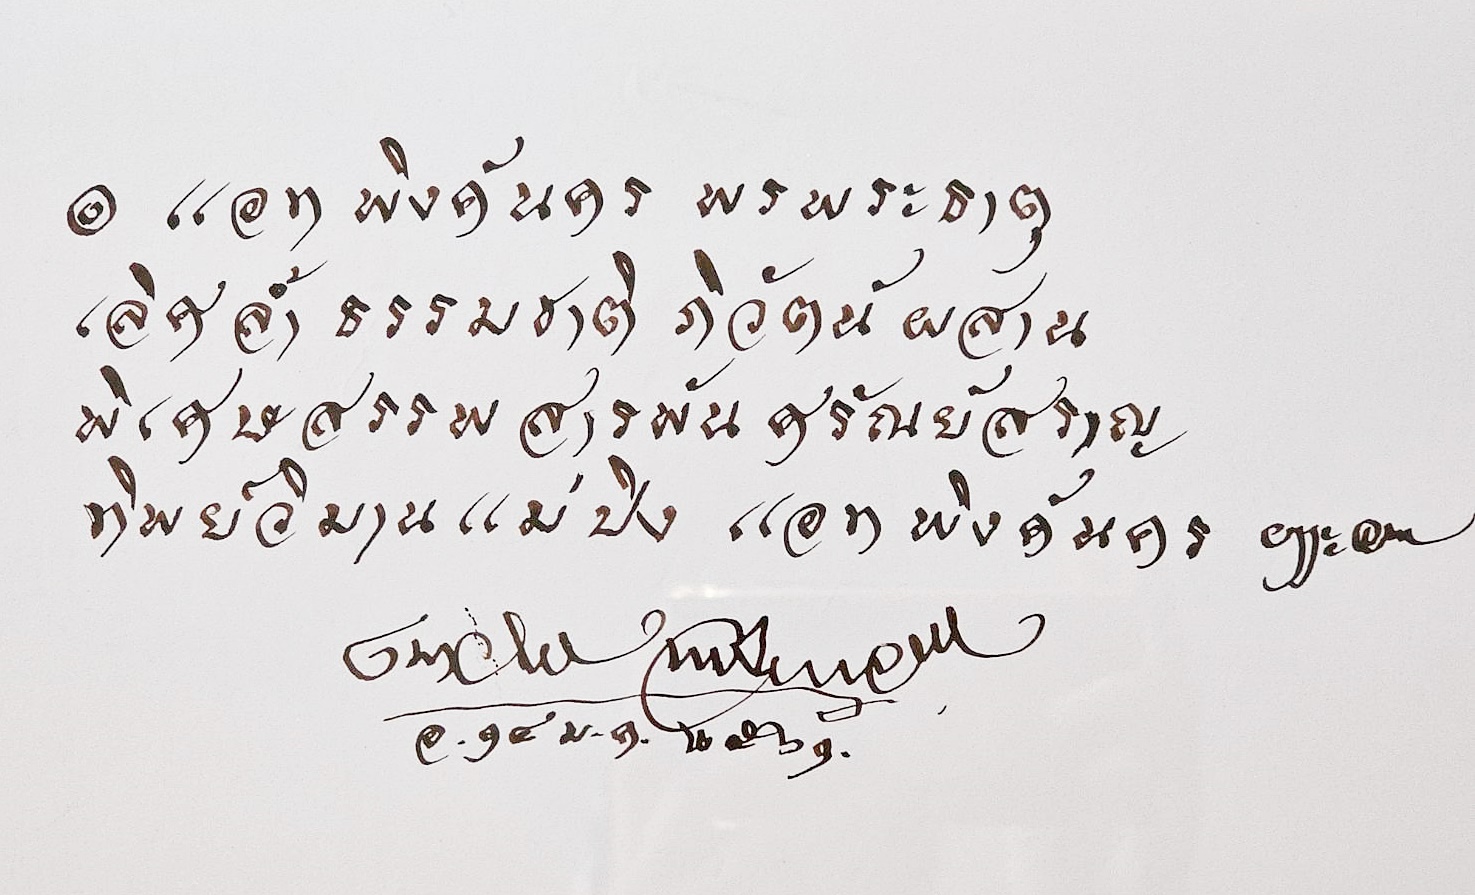 ๏ แอท พิงค์นคร พรพระธาตุ
เลิศล้ำ ธรรมชาติ ภิวัตน์ ผสาน
พิเศษสรรพ สารพัน ศรัณย์สราญ
ทิพย์วิมานแม่ปิง แอท พิงค์นคร